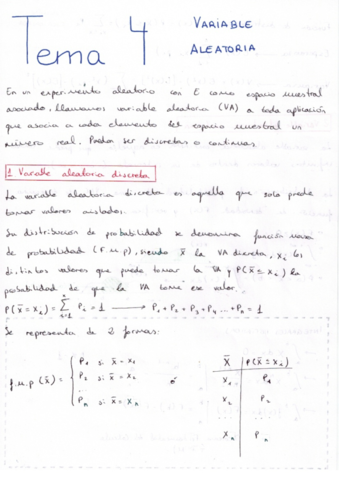 Tema 4 VARIABLE
ALEATORIA
En un experimento aleatorio con E como espacio muestral
asociado, llamamos variable aleatoria (VA) a toda aplicación
que asocia a cada elemento del espacio muestral un
número real. Pueden ser discretas o continuas.
1 Variable aleatoria discreta
La variable aleatoria discreta es aquella que solo puede
tomar valores aislados.
Su distribución de probabilidad se denomina función masa
de probabilidad (f.m.p), siendo x̄ la VA discreta, xᵢ los
distintos valores que puede tomar la VA y P(x̄ = xᵢ) la
probabilidad de que la VA tome ese valor.
P(x̄ = xᵢ) = Σ Pᵢ = 1 → P₁ + P₂ + P₃ + P₄ ... + Pₙ = 1
Se representa de 2 formas:
f.m.p (x̄) = { P₁ si x̄ = x₁
P₂ si x̄ = x₂
Pₙ si x̄ = xₙ
ó
X̄ P(x̄ = xᵢ)
x₁ P₁
x₂ P₂
xₙ Pₙ